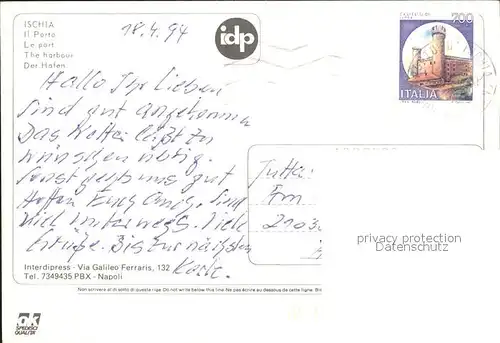 ISCHIA
Il Porto
Le port
The harbour
Der Hafen
18.4.94
idp
700
ITALIA
Hallo Ihr Lieben
Sind gut angekommen
Das Wetter läßt zu
wünschen übrig.
Sonst geht uns gut
Hoffen Euch auch. Sind
viel unterwegs. Viele
Grüße. Bis zur nächsten
Karte.
Jutta
Fm
2103
privacy protection
Datenschutz
Interdipress - Via Galileo Ferraris, 132
Tel. 7349435 PBX - Napoli
Non scrivere al di sotto di questa riga Do not write below this line Ne pas écrire au dessous de cette ligne
OK
SPEDISCI
QUALITA'